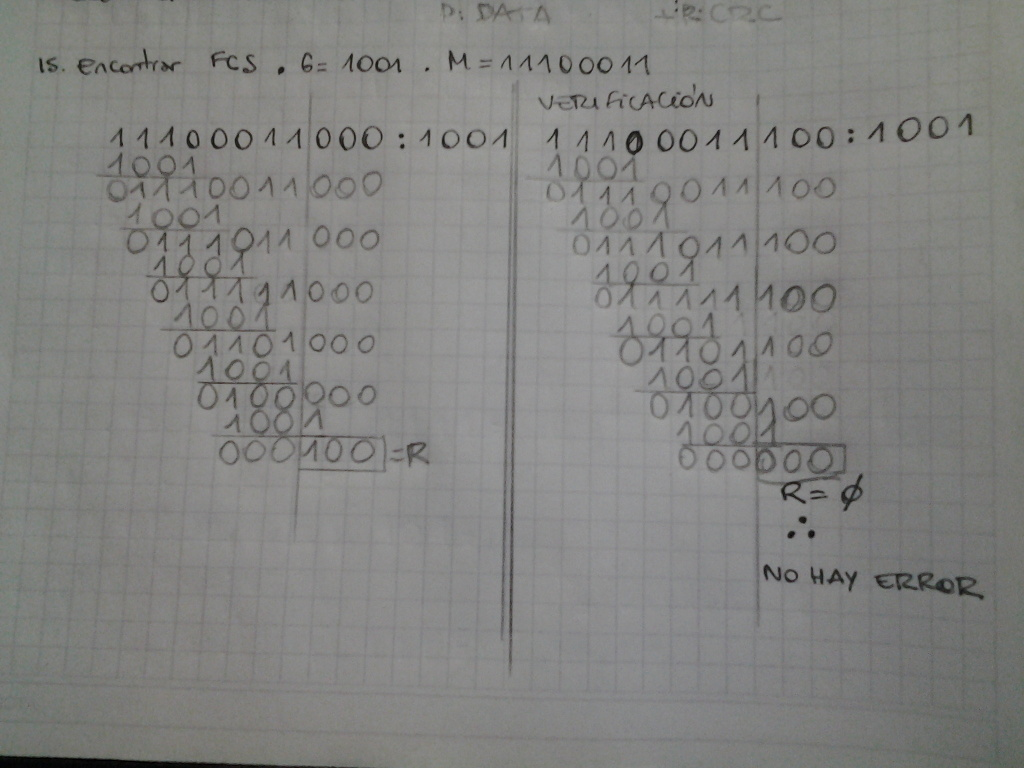 D: DATA
CRC
15. Encontrar FCS . G= 1001 . M = 11100011
11100011000 : 1001
1001
01110011 000
1001
0111011 000
1001
011111 000
1001
01101 000
1001
0100 000
1001
000100 = R
VERIFICACIÓN
11100011100 : 1001
1001
01110011 100
1001
0111011 100
1001
011111 100
1001
01101 100
1001
0100 100
1001
000000
R = ∅
∴
NO HAY ERROR